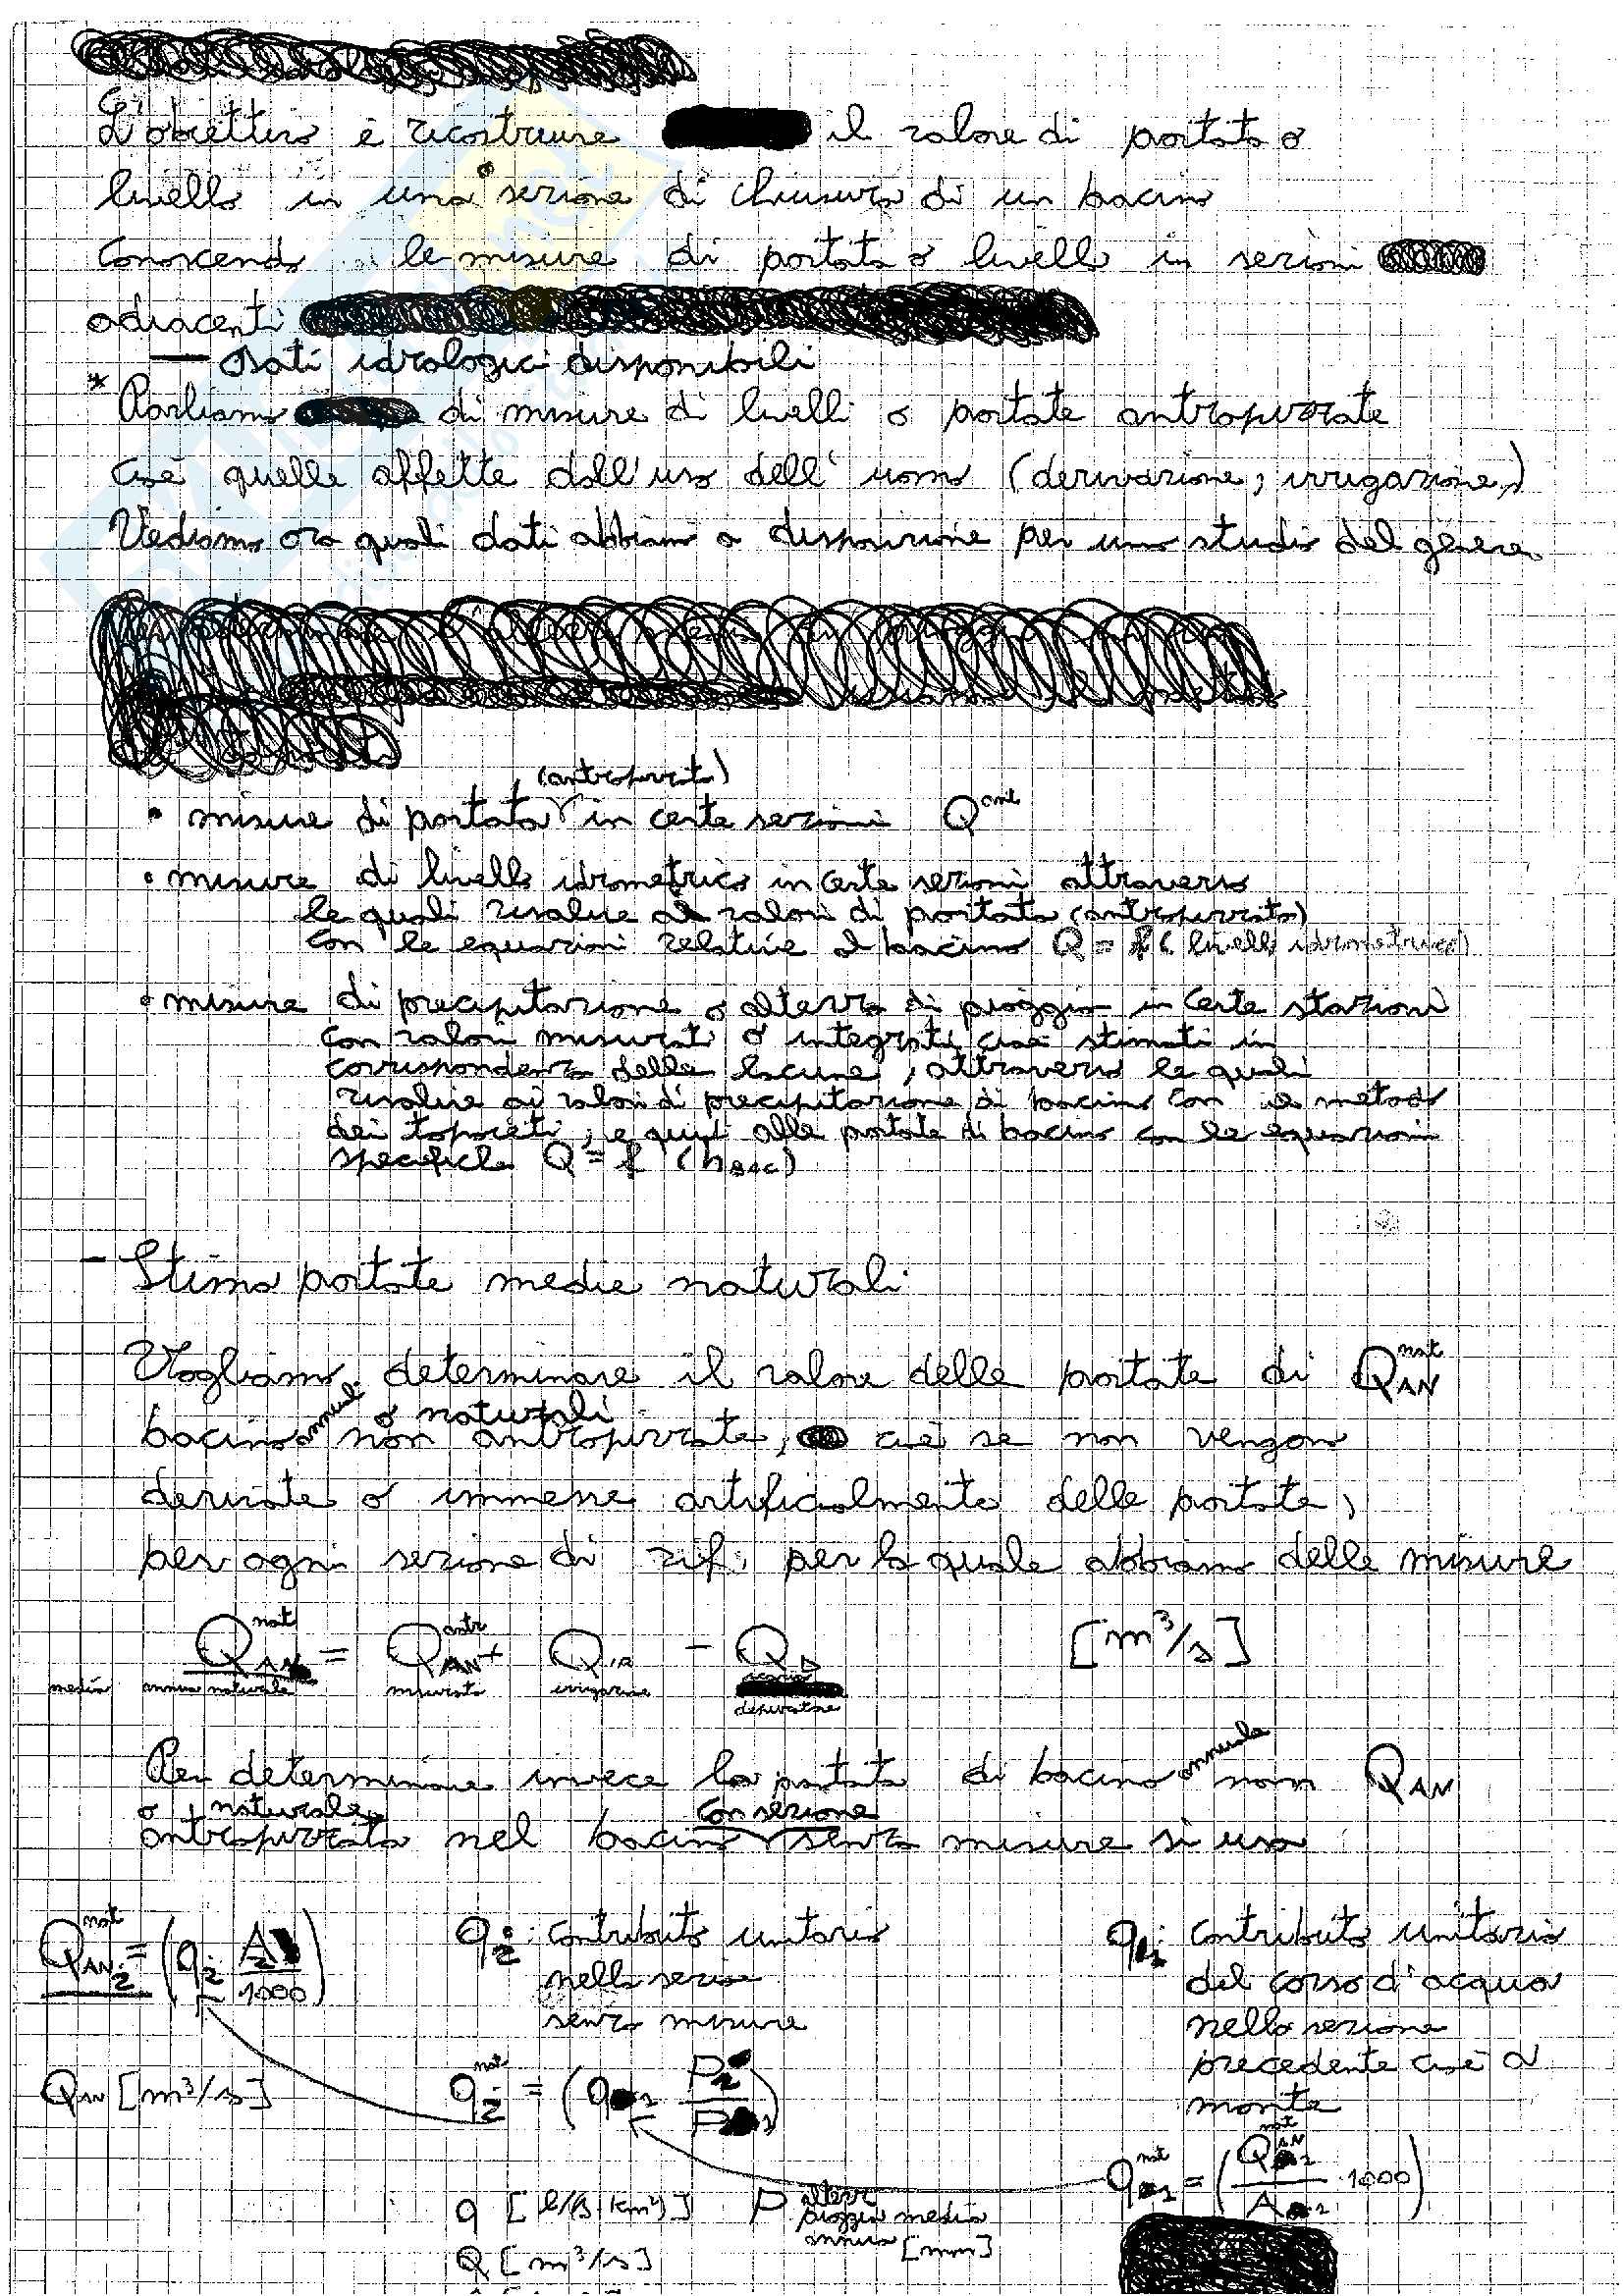 L'obiettivo è ricostruire il valore di portata o
livello in una sezione di chiusura di un bacino
conoscendo le misure di portata o livello in sezioni
adiacenti
— Dati idrologici disponibili
* Parliamo di misure di livelli o portate antropizzate
cioè quelle affette dall'uso dell'uomo (derivazione, irrigazione)
Vediamo ora quali dati abbiamo a disposizione per uno studio del genere
(antropizzata)
• misure di portata in certe sezioni Q^ant
• misure di livello idrometrico in certe sezioni attraverso
le quali risalire ai valori di portata (antropizzata)
con le equazioni relative al bacino Q = f ( livello idrometrico)
• misure di precipitazione o altezza di pioggia in certe stazioni
con valori misurati o integrati cioè stimati in
corrispondenza delle lacune, attraverso le quali
risalire ai valori di precipitazione di bacino con il metodo
dei topoieti, e quindi alle portate di bacino con le equazioni
specifiche Q = f (h_BAC)
- Stima portate medie naturali
Vogliamo determinare il valore delle portate di Q_AN^nat
annuali o naturali
bacino non antropizzate, cioè se non vengono
derivate o immesse artificialmente delle portate,
per ogni sezione di rif. per la quale abbiamo delle misure
Q_AN^nat = Q_AN^antr + Q_IR - Q_D [m³/s]
media annua naturale misurata irrigazione acqua derivazione
Per determinare invece la portata di bacino annuale non Q_AN
o naturale con sezione
antropizzata nel bacino senza misure si usa
Q_AN2^nat = (q_2 A_2/1000) q_2: contributo unitario q_1: contributo unitario
nella sezione del corso d'acqua
senza misure nella sezione
precedente cioè a
monte
Q_AN [m³/s] q_2^nat = (q_1 P_2/P_1)
q_1^nat = (Q_AN1^nat/A_1 · 1000)
q [l/s·km²] P altezza
pioggia media
annua [mm]
Q [m³/s]